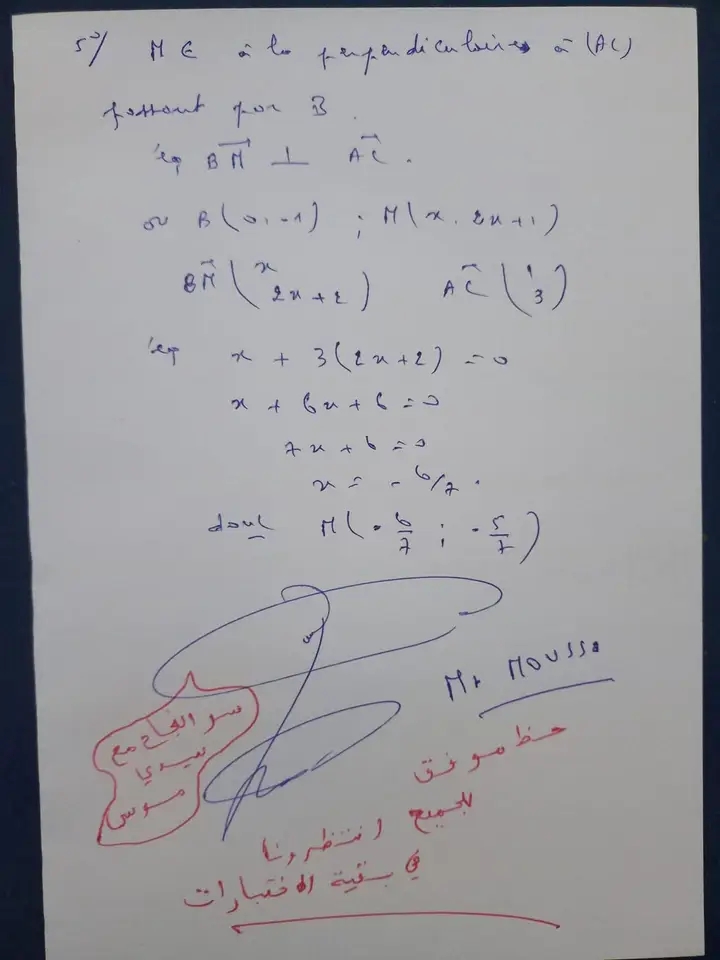 5°/ M ∈ à la perpendiculaire à (AC)
passant par B.
éq BM⃗ ⊥ AC⃗ .
or B(0; -1) ; M(x; 2x+1)
BM⃗ (x 2x+2) AC⃗ (1 3)
éq x + 3(2x+2) = 0
x + 6x + 6 = 0
7x + 6 = 0
x = - 6/7 .
donc M(- 6/7 ; - 5/7)
Mr MOUSSA
سر النجاح مع
سيدي
موسى
حظ موفق
للجميع انتظرونا
في بقية الاختبارات